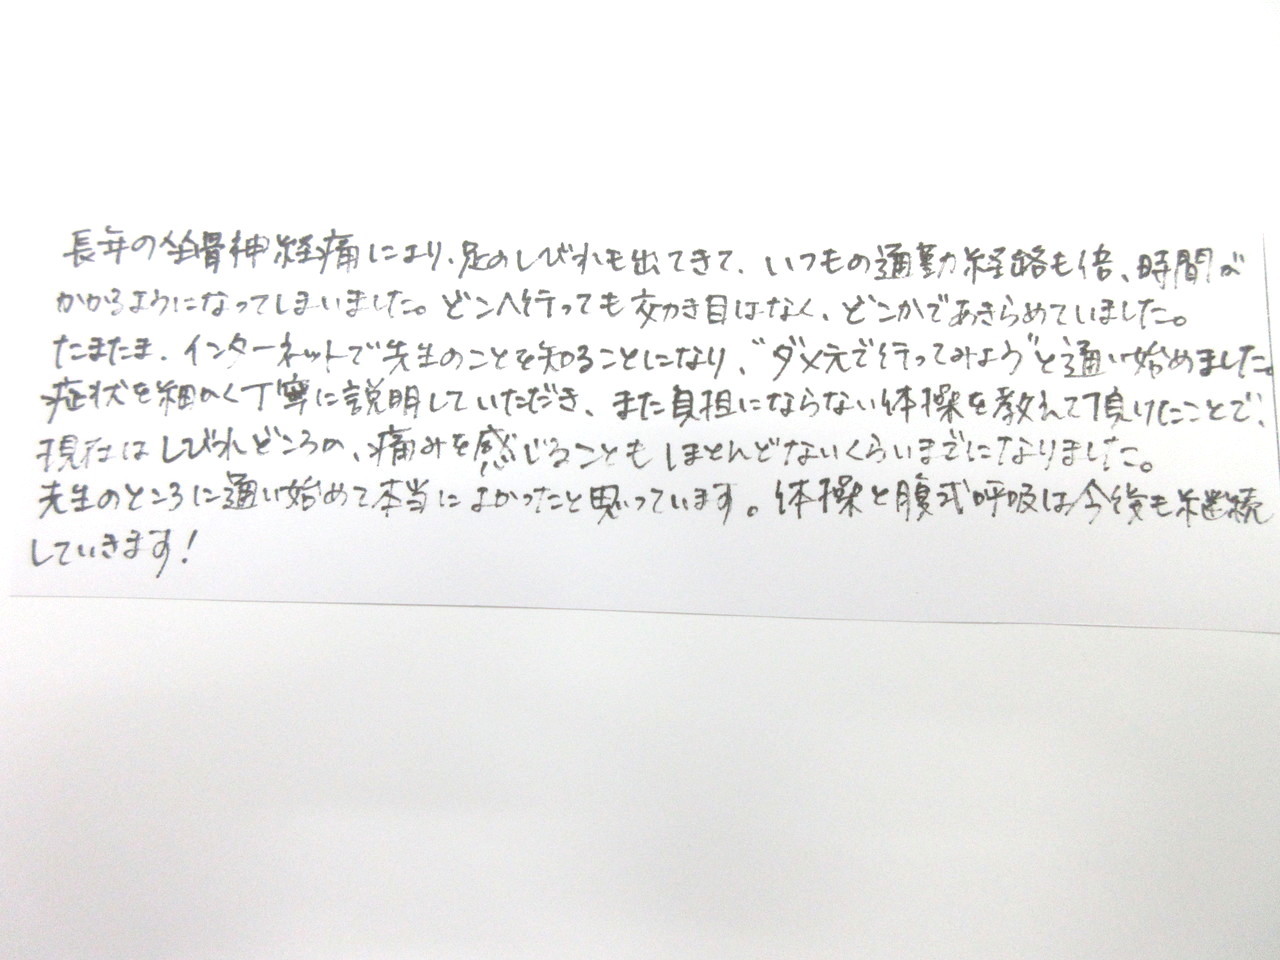 長年の坐骨神経痛により、足のしびれも出てきて、いつもの通勤経路も倍、時間が
かかるようになってしまいました。どこへ行っても効き目はなく、どこかであきらめていました。
たまたま、インターネットで先生のことを知ることになり、“ダメ元で行ってみよう”と通い始めました。
症状を細かく丁寧に説明していただき、また負担にならない体操を教えて頂けたことで、
現在はしびれどころか、痛みを感じることもほとんどないくらいまでになりました。
先生のところに通い始めて本当によかったと思っています。体操と腹式呼吸は今後も継続
していきます！